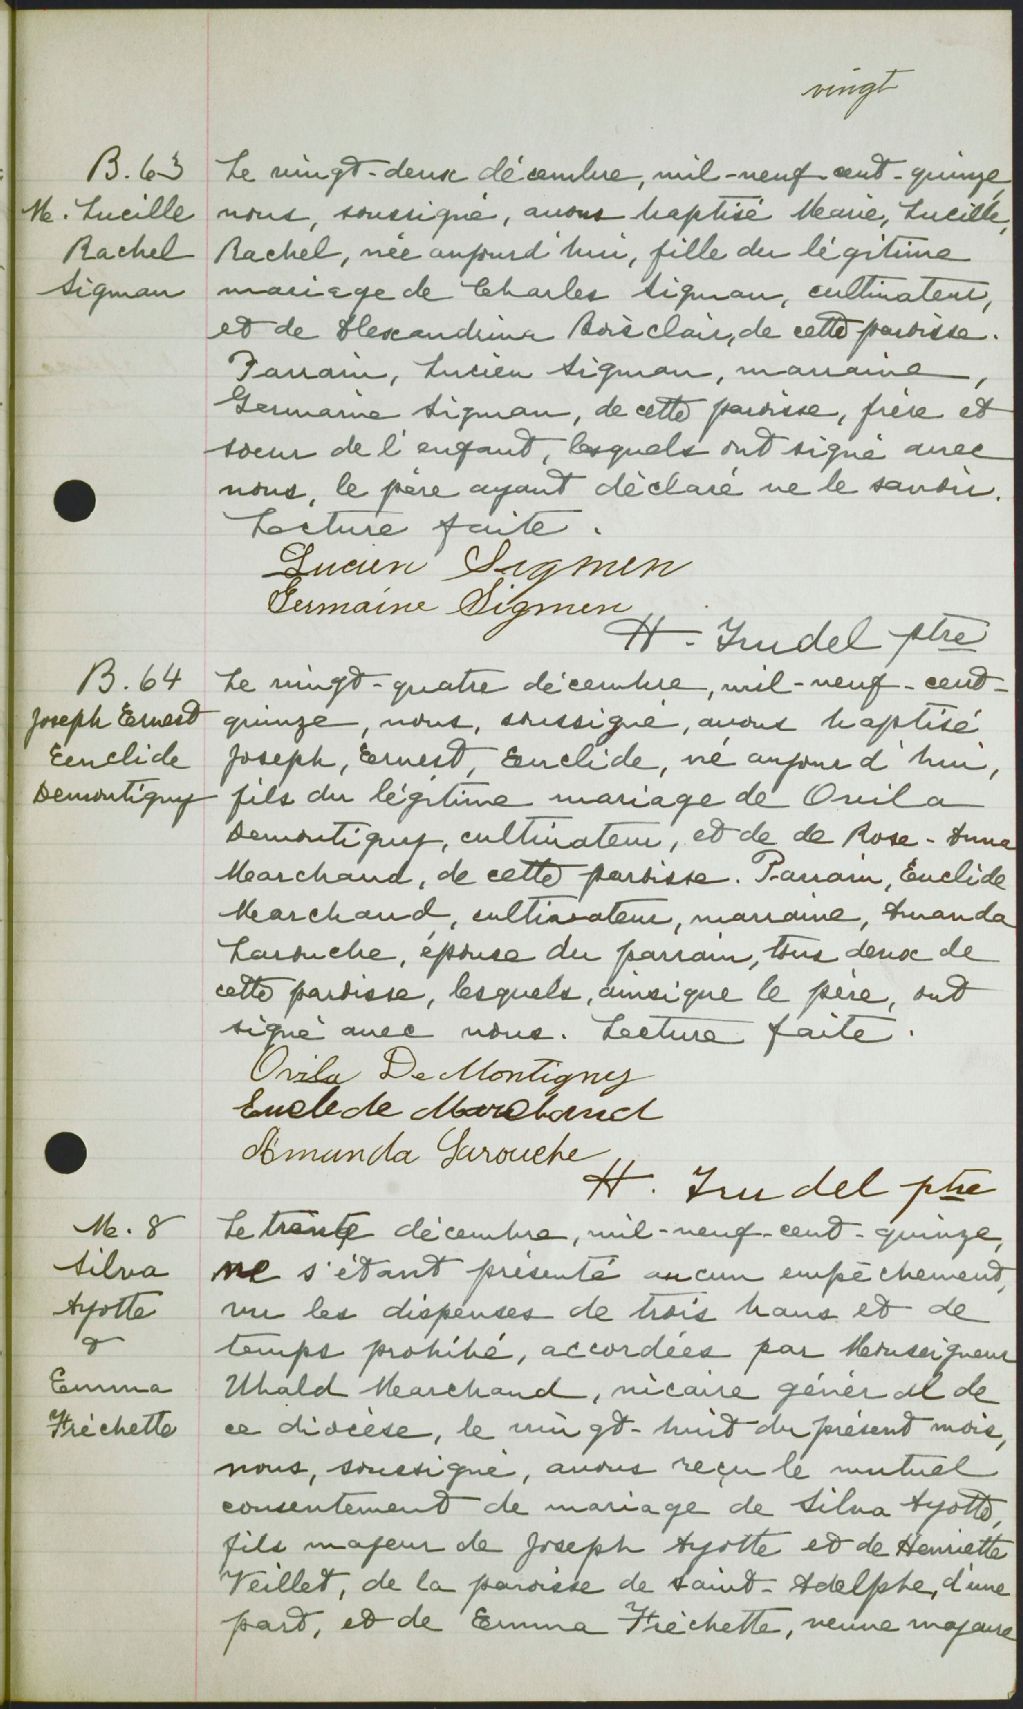 vingt
B. 63
M. Lucille
Rachel
Sigman
Le vingt-deux décembre, mil-neuf-cent-quinze,
nous, soussigné, avons baptisé Marie, Lucille,
Rachel, née aujourd'hui, fille du légitime
mariage de Charles Sigman, cultivateur,
et de Alexandrina Boisclair, de cette paroisse.
Parrain, Lucien Sigman, marraine,
Germaine Sigman, de cette paroisse, frère et
soeur de l'enfant, lesquels ont signé avec
nous, le père ayant déclaré ne le savoir.
Lecture faite.
Lucien Sigmen
Germaine Sigmen
H. Trudel ptre
B. 64
Joseph Ernest
Euclide
Demontigny
Le vingt-quatre décembre, mil-neuf-cent-
quinze, nous, soussigné, avons baptisé
Joseph, Ernest, Euclide, né aujourd'hui,
fils du légitime mariage de Ovila
Demontigny, cultivateur, et de de Rose-Anna
Marchand, de cette paroisse. Parrain, Euclide
Marchand, cultivateur, marraine, Amanda
Larouche, épouse du parrain, tous deux de
cette paroisse, lesquels, ainsi que le père, ont
signé avec nous. Lecture faite.
Ovila De Montigny
Euclede Marchand
Amanda Larouche
H. Trudel ptre
M. 8
Silva
Ayotte
&
Emma
Fréchette
Le trente décembre, mil-neuf-cent-quinze,
ne s'étant présenté aucun empêchement,
vu les dispenses de trois bans et de
temps prohibé, accordées par Monseigneur
Ubald Marchand, vicaire général de
ce diocèse, le vingt-huit du présent mois,
nous, soussigné, avons reçu le mutuel
consentement de mariage de Silva Ayotte,
fils majeur de Joseph Ayotte et de Henriette
Veillet, de la paroisse de Saint-Adelphe, d'une
part, et de Emma Fréchette, veuve majeure